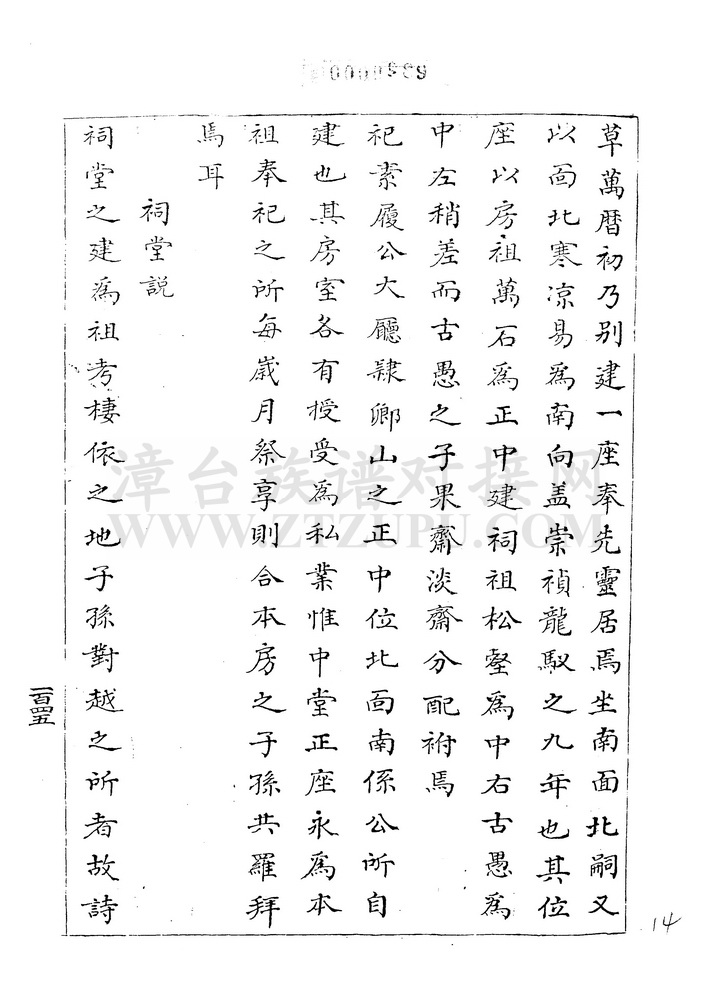 草萬曆初乃別建一座奉先靈居焉坐南面北嗣又
以面北寒凉易為南向盖崇禎龍馭之九年也其位
座以房祖萬石為正中建祠祖松壑為中右古愚為
中左稍差而古愚之子果齋淡齋分配祔焉
祀素履公大廳隸鄉山之正中位北面南係公所自
建也其房室各有授受為私業惟中堂正座永為本
祖奉祀之所每歲月祭享則合本房之子孫共羅拜
焉耳
祠堂説
祠堂之建為祖考棲依之地子孫對越之所者故詩
一百四五
14
漳台族谱对接网
WWW.ZTZUPU.COM